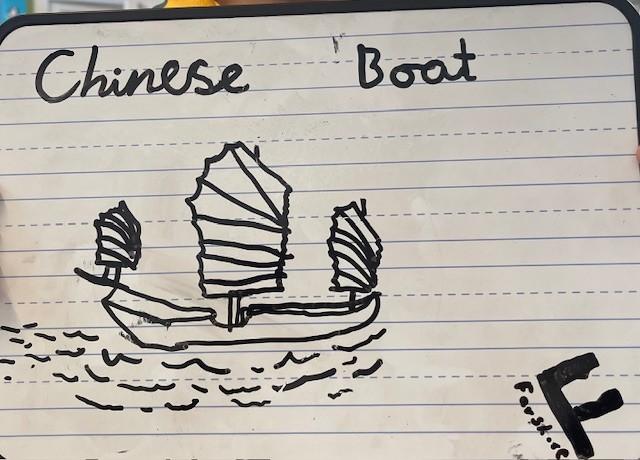 Chinese Boat
F